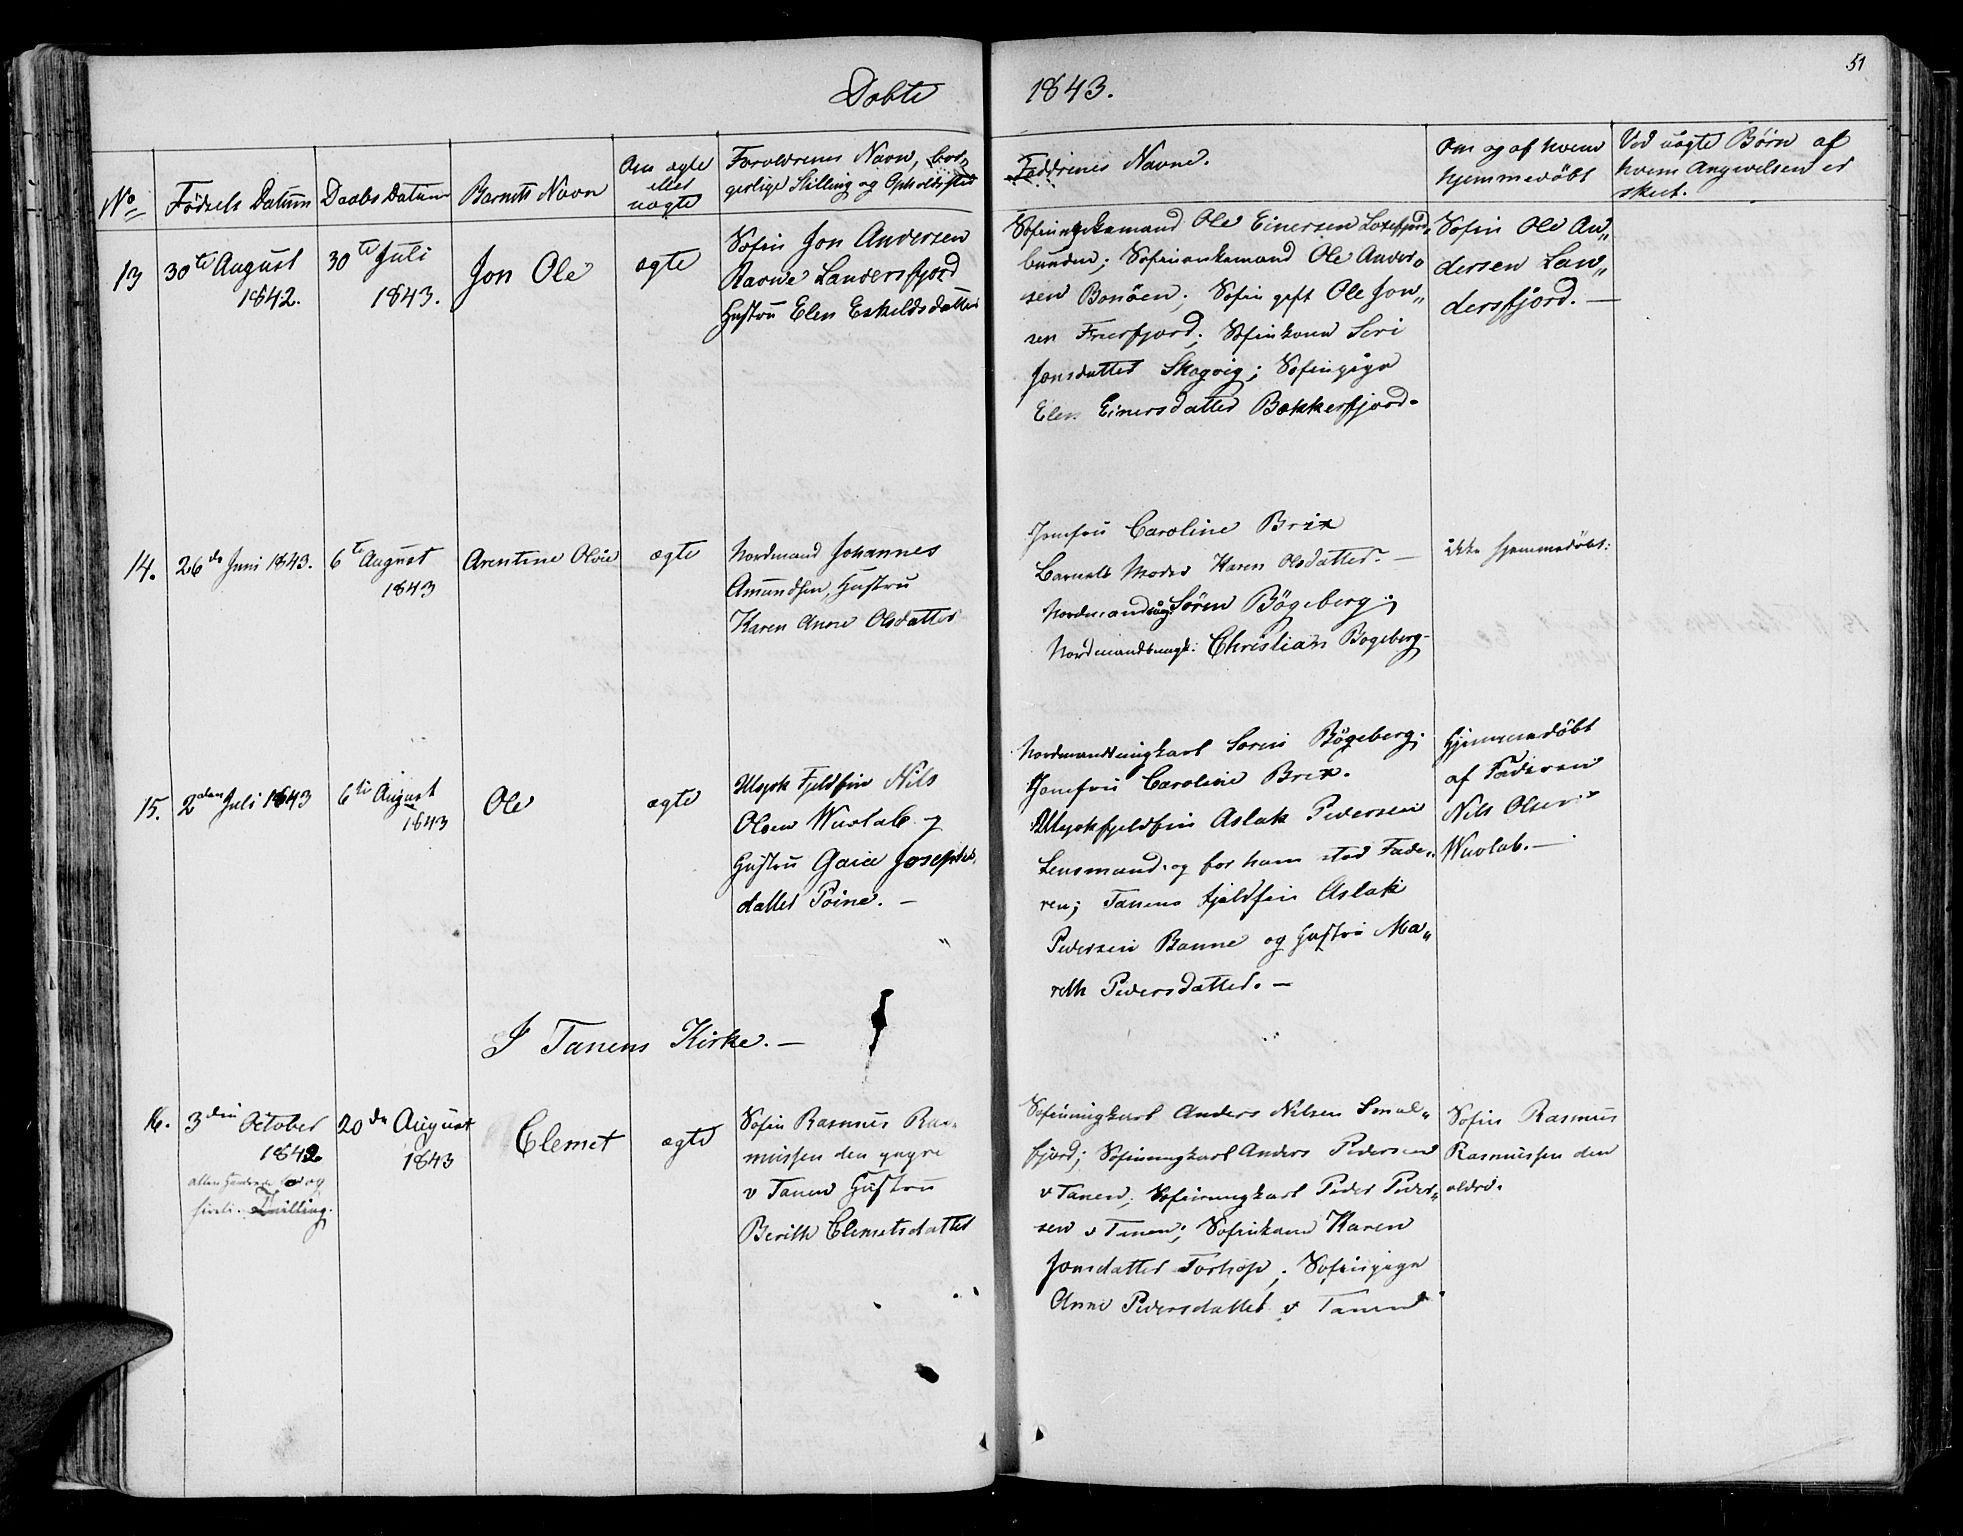 51
Døbte 1843.
No Fødsels Datum Daabs Datum Barnets Navn Om ægte eller uægte Forældrenes Navn, borgerlige Stilling og Opholdssted Faddrenes Navne. Om og af hvem hjemmedøbt Ved uægte Børn af hvem Angivelsen er skeet.
13 30te August 1842. 30te Juli 1843. Jon Ole ægte
Søfin Jon Andersen
Landersfjord
Hustru Elen Eskildsdatter
Ole Einersen
bunden; Ole Ander-
sen Bonöen; Søfin gift Ole Jon„
sen Frierfjord; Søfinkone Siri
Jonsdatter Skogvig; Søfinpige
Elen Einersdatter Bekkerfjord.
Søfin Ole An„
dersen Lan„
dersfjord. —
14. 26de Juni 1843. 6te August 1843 Arentine ægte
Nordmand Johannes
Amundsen, Hustru
Karen Anne Olsdatter
Jomfru Caroline Brix
Barnets Moder Karen Olsdatter. —
Sören Bögeberg;
Christian Bogeberg
ikke hjemmedöbt:
15. 2den Juli 1843 6te August 1843 Ole ægte
Fjeldfin Nils
Olsen Wuolab og
Hustru Gaia Josephs-
datter Poine. —
Nordmandsungkarl Sören Bögeberg;
Jomfru Caroline Brix.
Aslak Pedersen
Lensmand, og for ham stod Fade„
ren; Tanens fjeldfin Aslak
Pedersen Banne og Hustru Ma„
reth Pedersdatter. —
Hjemmedöbt
af Faderen
Nils Olsen
Wuolab. —
I Tanens Kirke. —
16. 3die October 1842. 20de August 1843 Clemet ægte
Tvilling.
Søfin Rasmus Ras-
mussen den yngre
v Tanen Hustru
Berith Clemetsdatter
Søfinungkarl Anders Nilsen Smal„
fjord; Søfinungkarl Anders Pedersen
v Tanen; Søfinungkarl Peder Peder„
sen v Tanen; Søfinkone Karen
Jonsdatter Torhop; Søfinpige
Anne Pedersdatter v Tanen
Søfin Rasmus
Rasmussen den
ældre.